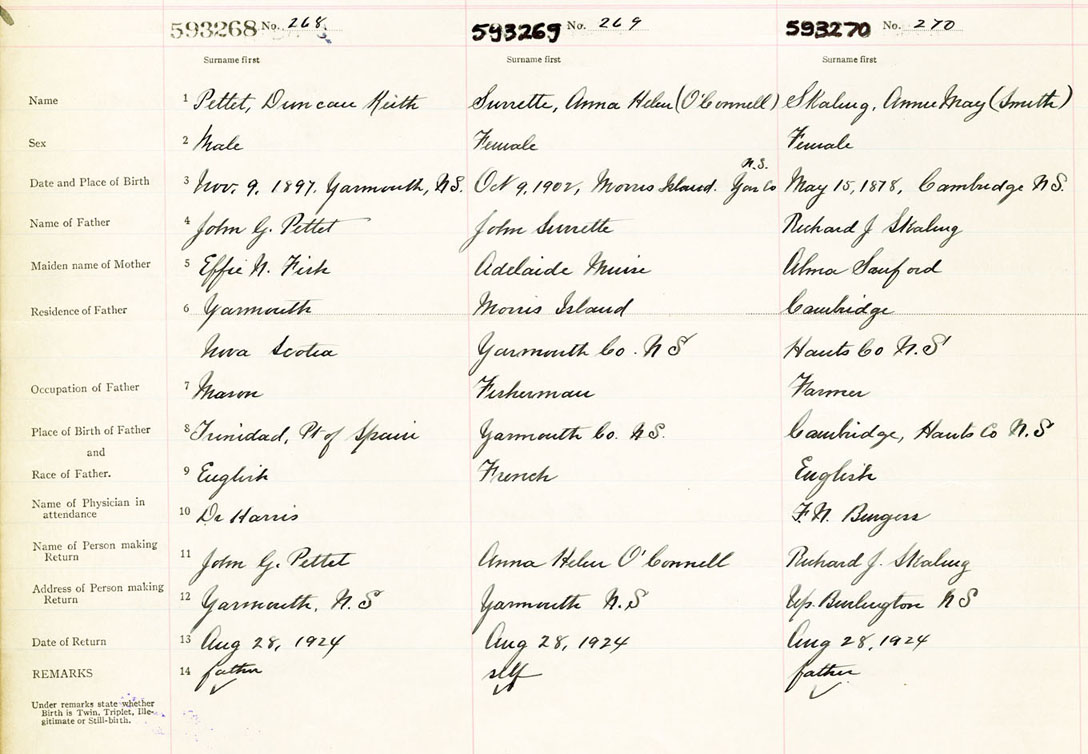 593268 No. 268. 593269 No. 269 593270 No. 270
Surname first Surname first Surname first
Name 1 Pettet, Duncan Keith Surrette, Anna Helen (O'Connell) Skaling, Annie May (Smith)
Sex 2 Male Female Female
N.S.
Date and Place of Birth 3 Nov. 9, 1897. Yarmouth, N.S. Oct 9, 1902, Morris Island. Yar Co May 15, 1878, Cambridge N.S.
Name of Father 4 John G. Pettet John Surrette Richard J Skaling
Maiden name of Mother 5 Effie N. Fish Adelaide Muise Alma Sanford
Residence of Father 6 Yarmouth Morris Island Cambridge
Nova Scotia Yarmouth Co. N S Hants Co N.S
Occupation of Father 7 Mason Fisherman Farmer
Place of Birth of Father 8 Trinidad, Pt of Spain Yarmouth Co. N.S. Cambridge, Hants Co N.S
and
Race of Father. 9 English French English
Name of Physician in
attendance 10 Dr Harris F.N. Burgess
Name of Person making
Return 11 John G. Pettet Anna Helen O'Connell Richard J. Skaling
Address of Person making
Return 12 Yarmouth, N.S Yarmouth N.S Up. Burlington N S
Date of Return 13 Aug 28, 1924 Aug 28, 1924 Aug 28, 1924
REMARKS 14 father self father
Under remarks state whether
Birth is Twin, Triplet, Ille-
gitimate or Still-birth.